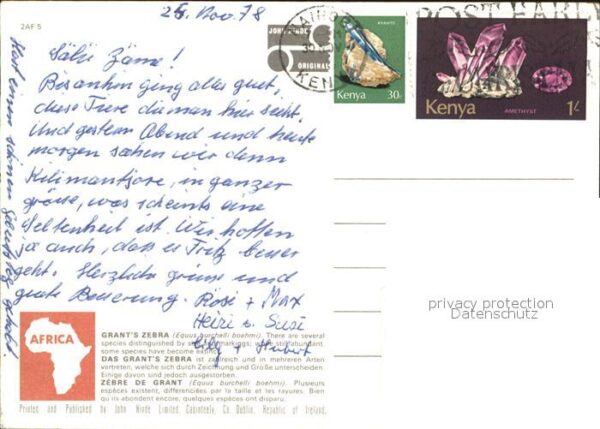 25. Nov. 78
2AF 5
Sälü Zäme!
Bis anhin ging alles guet,
diese Tiere die man hier sieht.
Und gestern Abend und heute
morgen sahen wir denn
Kilimantjore, in ganzer
grösse, was scheints eine
Seltenheit ist. Wir hoffen
ja auch, dass es Fritz besser
geht. Herzliche grüsse und
gute Besserung. Rösi + Max
Heizi u. Susi
+ Hubert
Hat einen schönen
JOHN HINDE
ORIGINAL
NAIROBI
KENYA
KYANITE
Kenya 30c
POSTCARD
Kenya
AMETHYST 1/-
privacy protection
Datenschutz
AFRICA
GRANT'S ZEBRA (Equus burchelli boehmi). There are several
species distinguished by size and markings; while still abundant,
some species have become extinct.
DAS GRANT'S ZEBRA ist zahlreich und in mehreren Arten
vertreten, welche sich durch Zeichnung und Größe unterscheiden.
Einige davon sind jedoch ausgestorben.
ZÈBRE DE GRANT (Equus burchelli boehmi). Plusieurs
espèces existent, differenciées par la taille et les rayures. Bien
qu'ils abondent encore, quelques espèces ont disparu.
Printed and Published by John Hinde Limited, Cabinteely, Co. Dublin, Republic of Ireland.